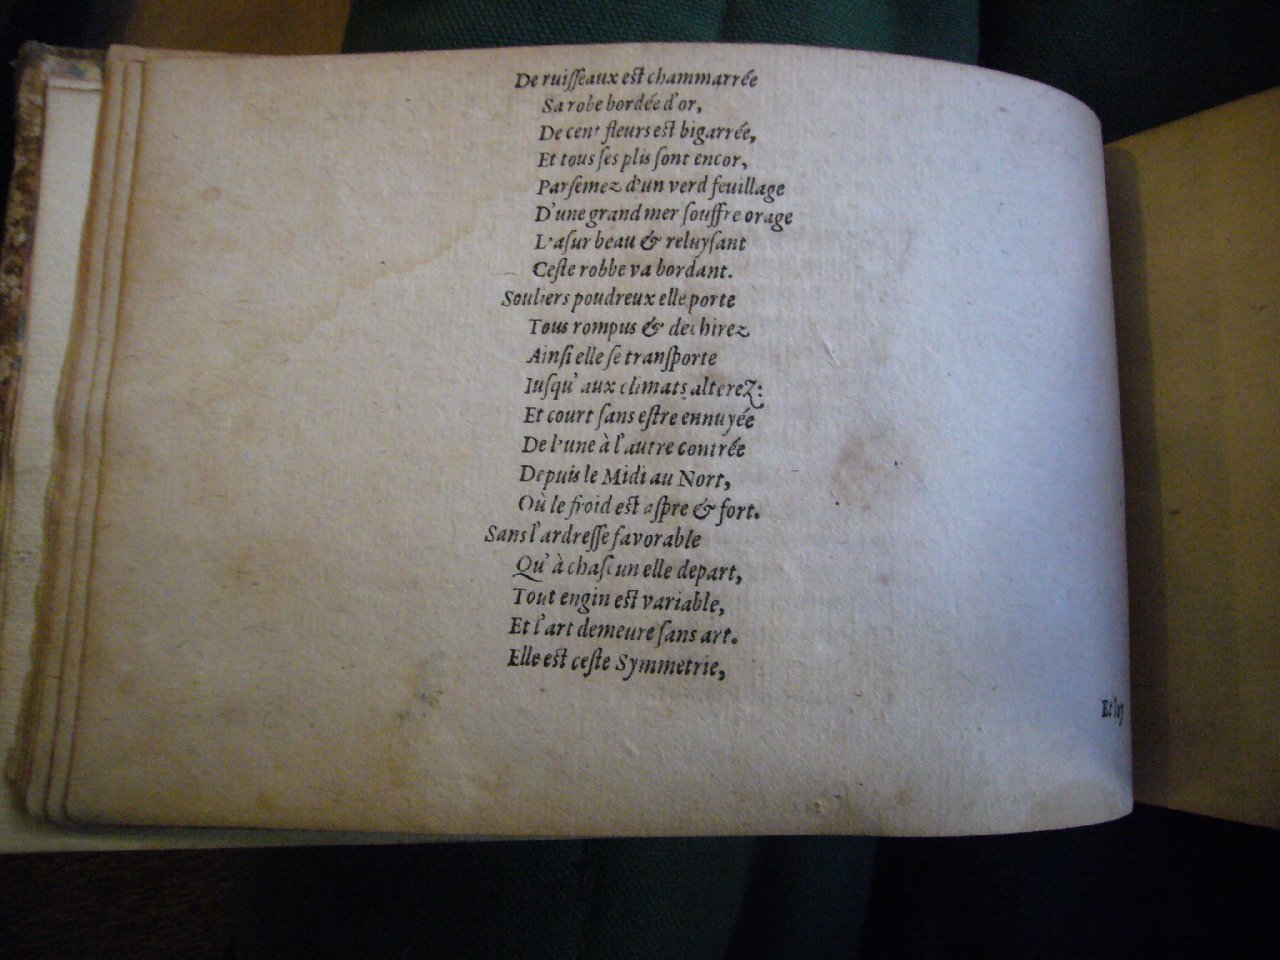 De ruiſſeaux est chammarrée
Sa robe bordée d'or,
De cent fleurs est bigarrée,
Et tous ſes plis ſont encor,
Parſemez d'un verd feuillage
D'une grand mer ſouffre orage
L'aſur beau & reluyſant
Ceſte robbe va bordant.
Souliers poudreux elle porte
Tous rompus & dechirez
Ainſi elle ſe tranſporte
Iuſqu' aux climats alterez:
Et court ſans eſtre ennuyée
De l'une à l'autre contrée
Depuis le Midi au Nort,
Où le froid est aſpre & fort.
Sans l'ardreſſe favorable
Qu' à chaſcun elle depart,
Tout engin est variable,
Et l'art demeure ſans art.
Elle est ceſte Symmetrie,
Et loy